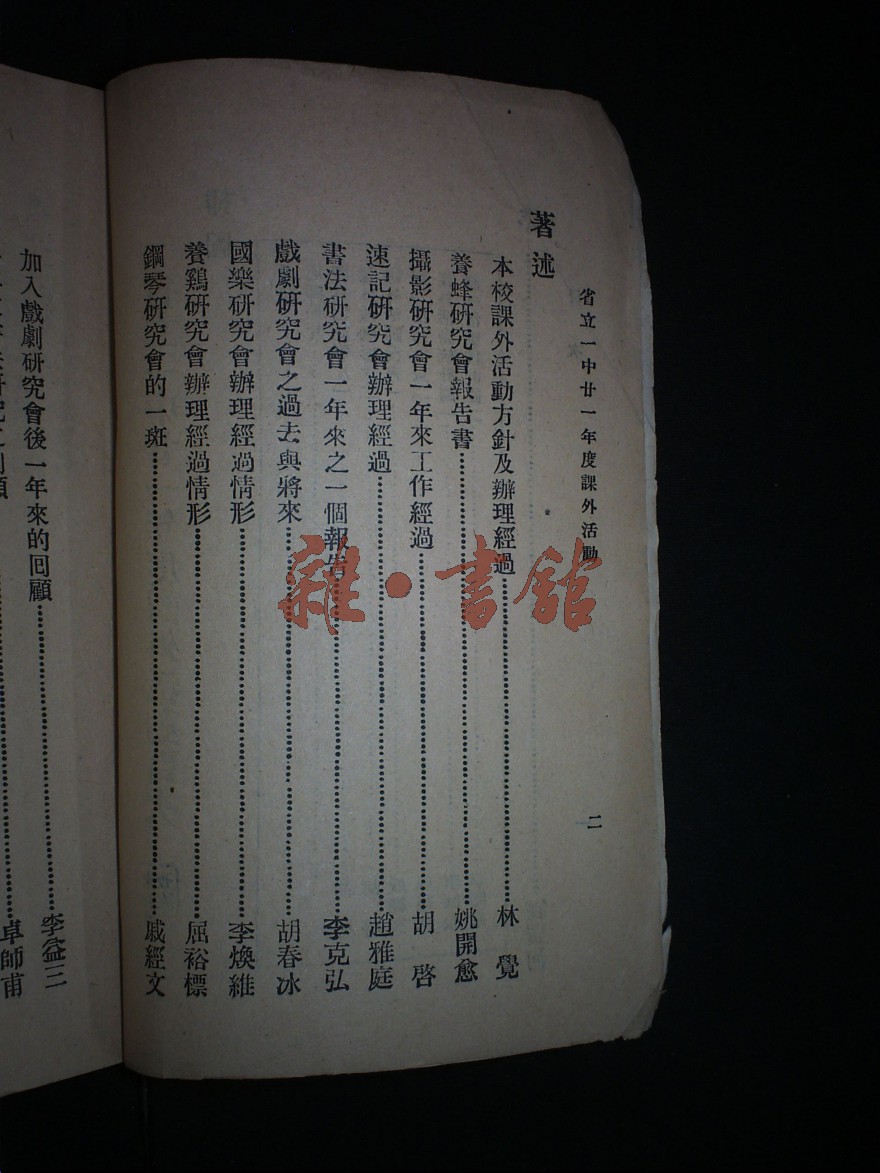 省立一中廿一年度課外活動 二
著述
本校課外活動方針及辦理經過……林覺
養蜂研究會報告書……姚開愈
攝影研究會一年來工作經過……胡啓
速記研究會辦理經過……趙雅庭
書法研究會一年來之一個報告……李克弘
戲劇研究會之過去與將來……胡春冰
國樂研究會辦理經過情形……李煥維
養鷄研究會辦理經過情形……屈裕標
鋼琴研究會的一斑……戚經文
加入戲劇研究會後一年來的回顧……李益三
卓師甫
雜·書館